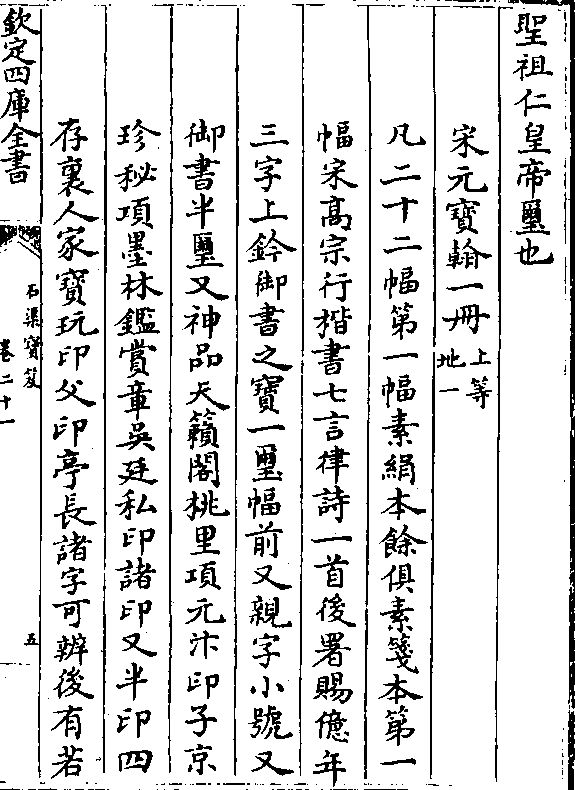 聖祖仁皇帝璽也
宋元寶翰一冊上等地一
凡二十二幅第一幅素絹本餘俱素箋本第一
幅宋髙宗行楷書七言律詩一首後署賜億年
三字上鈐御書之寶一璽幅前又親字小號又
御書半璽又神品天籟閣桃里項元汴印子京
珍秘項墨林鑑賞章吳廷私印諸印又半印四
存裏人家寶玩印父印亭長諸字可辨後有若
欽定四庫全書
石渠寶笈
卷二十一
五